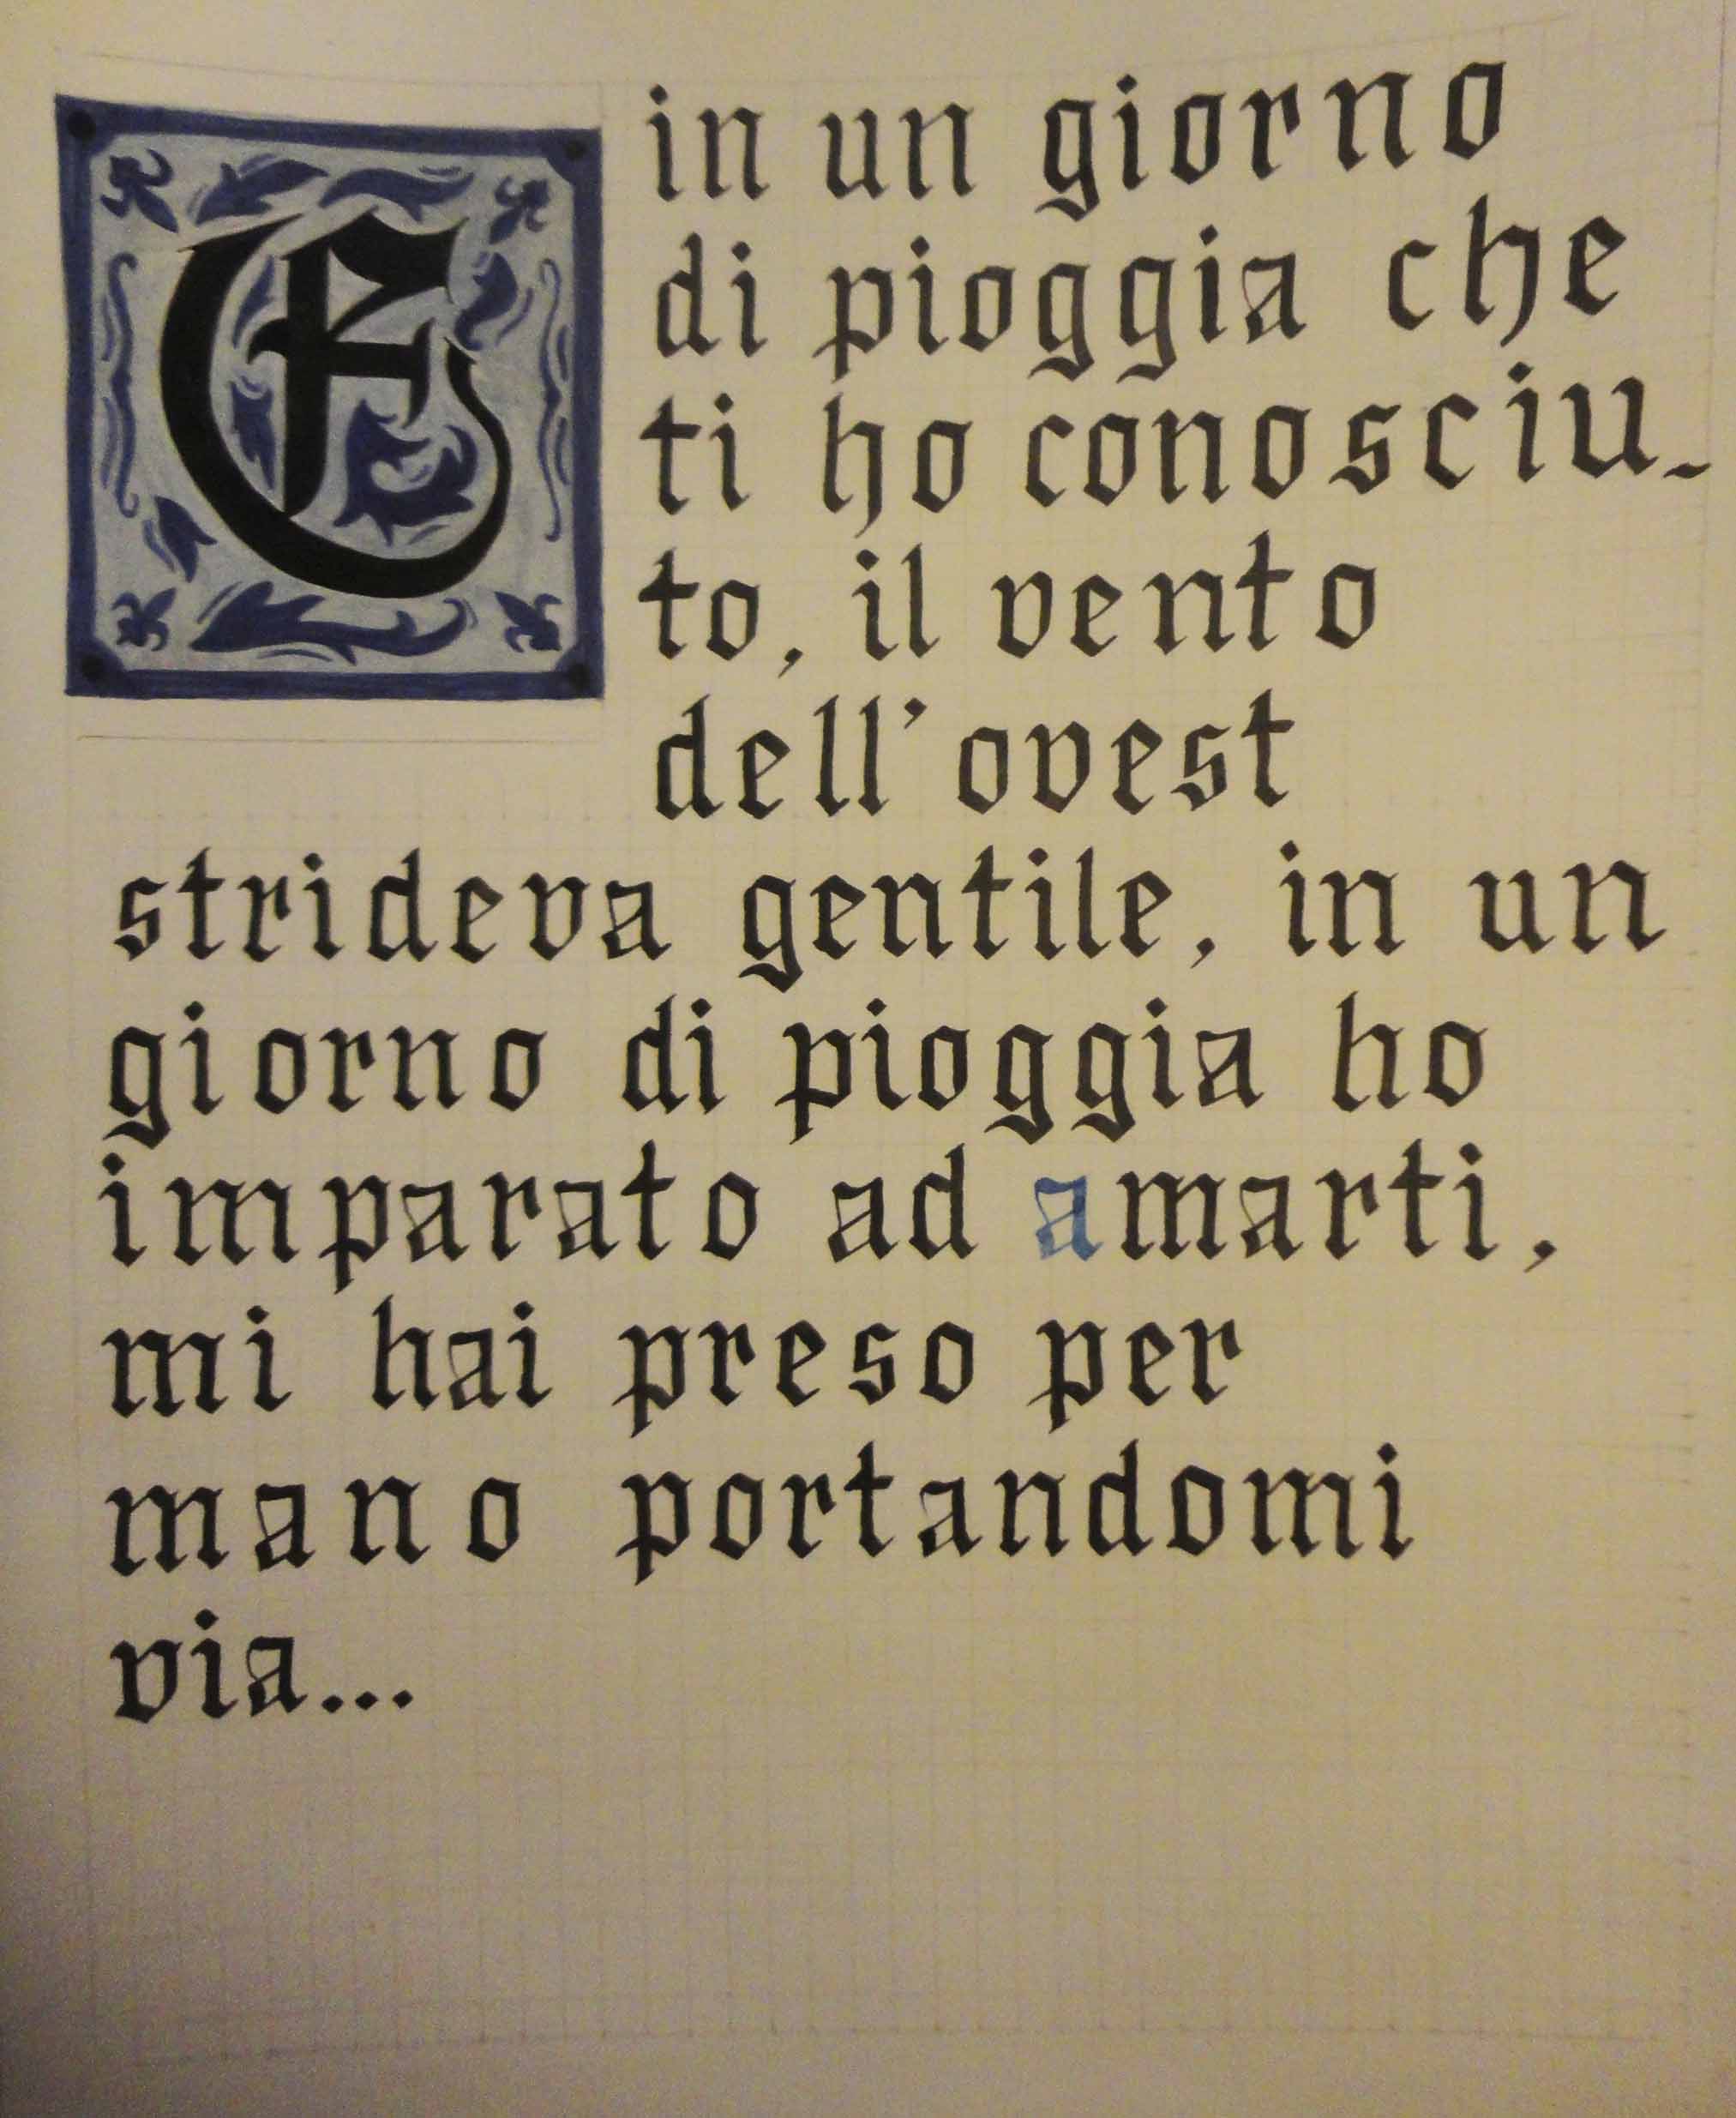 E in un giorno
di pioggia che
ti ho conosciu-
to, il vento
dell'ovest
strideva gentile, in un
giorno di pioggia ho
imparato ad amarti,
mi hai preso per
mano portandomi
via...